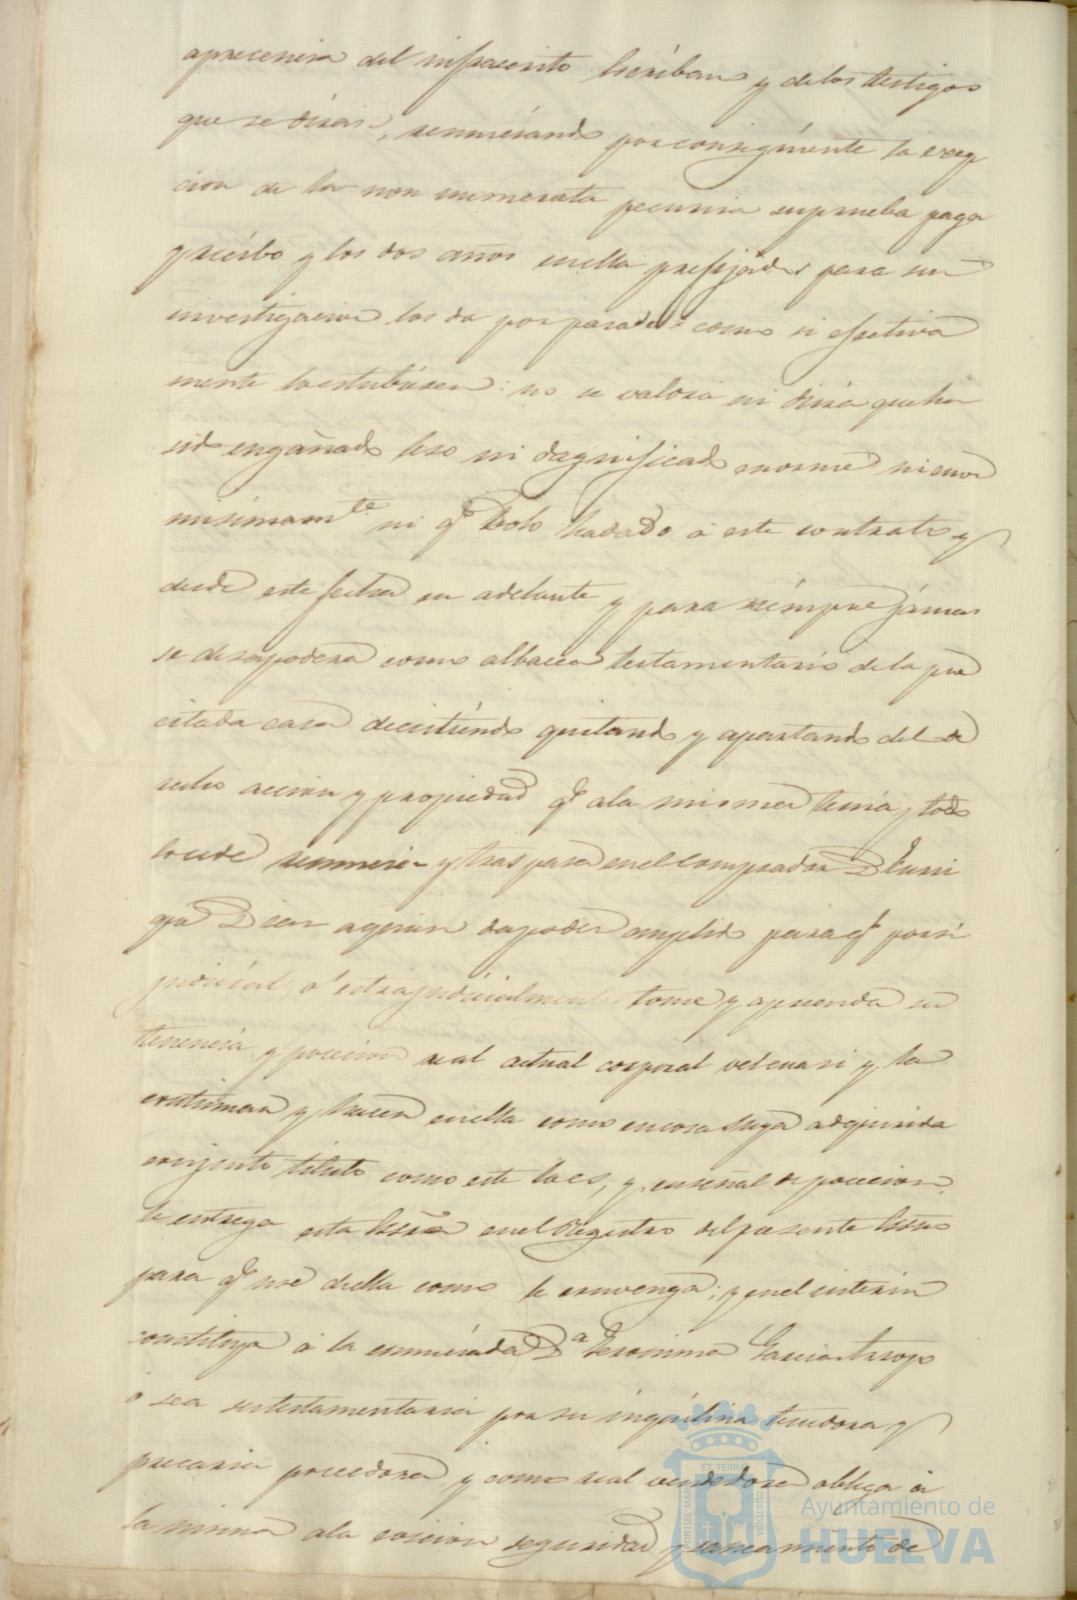 aprecencia del infraecrito Escribano y delos testigos
que se diran, renunciando por consiguiente la excep
cion de la non numerata pecunia suprueba paga
y recibo y los dos años enella prefijados para su
investigacion los da por pasados como si efectiva
mente lo estubiesen: no se valdra ni dirá que ha
sido engañado leso ni dagnificado enorme ni enor
misimamte ni qe dolo ha dado á este contrato y
desde este fecha en adelante y para siempre jámas
se desapodera como albacea testamentario de la pre
citada casa decistiendo quitando y apartando del de
recho accion y propiedad qe ala misma tenia y todo
lo cede renuncia y traspasa enel comprador Dn
Dias aquien dapoder amplio para qe por si
judicial ó extrajudicialmente tome y aprenda su
tenencia y pocecion real actual corporal velcuasi y la
continuan y hacen enella como encosa suya adquirida
conjusto titulo como este lo es, y enseñal de pocecion
le entrega esta Escra enel Registro delpresente Essno
para qe use deella como le convenga; y enel interin
constituye á la enunciada Da Geronima Garcia Arroyo
ó sea sutestamentaria por su inquilina tenedora y
precaria poceedora y como real vendedora obliga á
la misma ala eviccion seguridad y saneamiento de
PORTUS MARIS ET TERRAE CUSTODIA
Ayuntamiento de
HUELVA